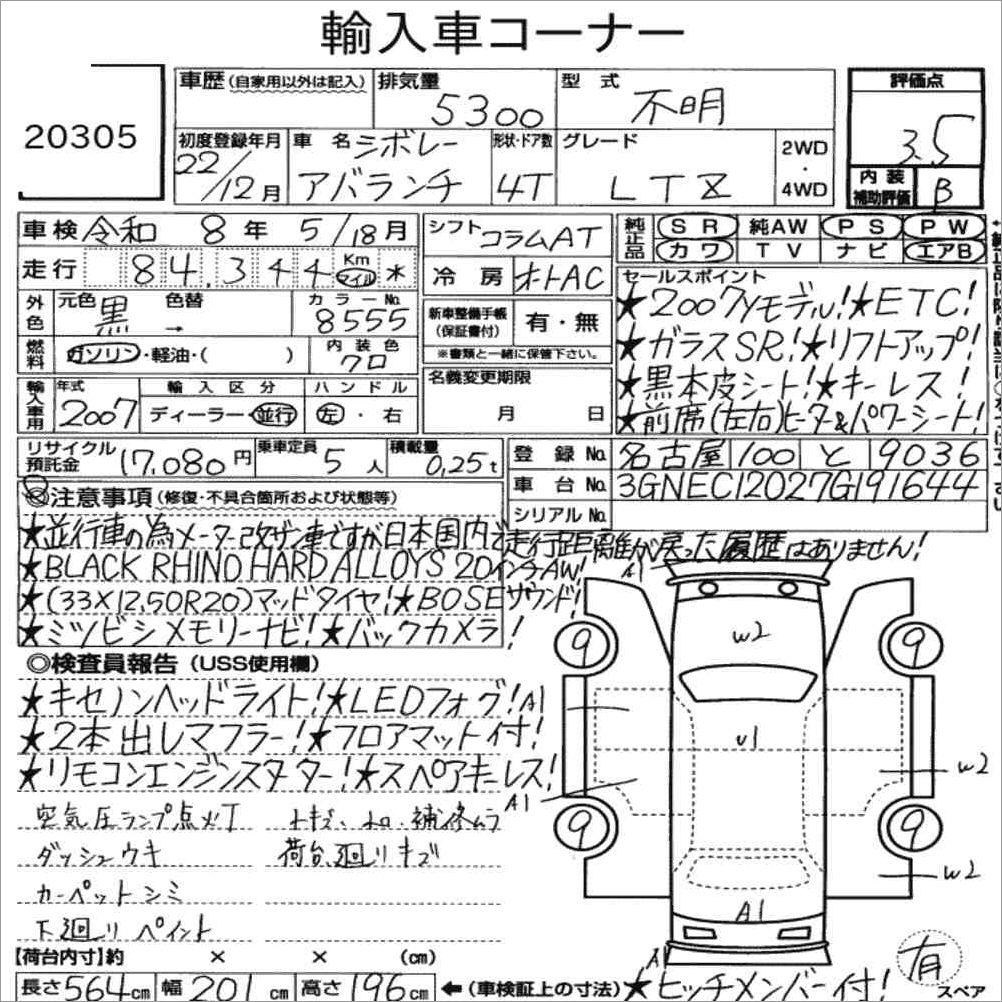 輸入車コーナー
20305
車歴(自家用以外は記入) 排気量 5300 型式 不明 評価点 3.5
初度登録年月 22/12月 車名 シボレー アバランチ 形状・ドア数 4T グレード LTZ 2WD・4WD 内装補助評価 B
車検 令和 8年 5/18月 シフト コラムAT 純正品 SR 純AW PS PW
走行 84,344 Km マイル ※ 冷房 オートAC カワ TV ナビ エアB
外色 元色 黒 → 色替 カラーNo. 8555 新車整備手帳(保証書付) 有・無
※書類と一緒に保管下さい。
燃料 ガソリン・軽油・( ) 内装色 クロ 名義変更期限 月 日
輸入車用 年式 2007 輸入区分 ディーラー・並行 ハンドル 左・右
セールスポイント
★2007yモデル!★ETC!
★ガラスSR!★リフトアップ!
★黒本皮シート!★キーレス!
★前席(左右)ヒーター&パワーシート!
リサイクル預託金 17,080円 乗車定員 5人 積載量 0.25t
登録No. 名古屋 100 と 9036
車台No. 3GNEC12027G191644
シリアルNo.
◎注意事項(修復・不具合箇所および状態等)
★並行車の為メーター改ザン車ですが日本国内で走行距離が戻った履歴はありません!
★BLACK RHINO HARD ALLOYS 20インチAW!
★(33×12.50R20)マッドタイヤ!★BOSEサウンド!
★ミツビシメモリーナビ!★バックカメラ!
◎検査員報告(USS使用欄)
★キセノンヘッドライト!★LEDフォグ!
★2本出しマフラー!★フロアマット付!
★リモコンエンジンスターター!★スペアキーレス!
空気圧ランプ点灯 トキズ、凹・補修ムラ
ダッシュウキ 荷台廻りキズ
カーペットシミ
下廻りペイント
A1
9 w2 9
A1
u1
w2
A1
9 9
w2
A1
A1
有
スペア
【荷台内寸】約 × × (cm)
長さ564cm 幅201cm 高さ196cm ←(車検証上の寸法) ★ヒッチメンバー付!